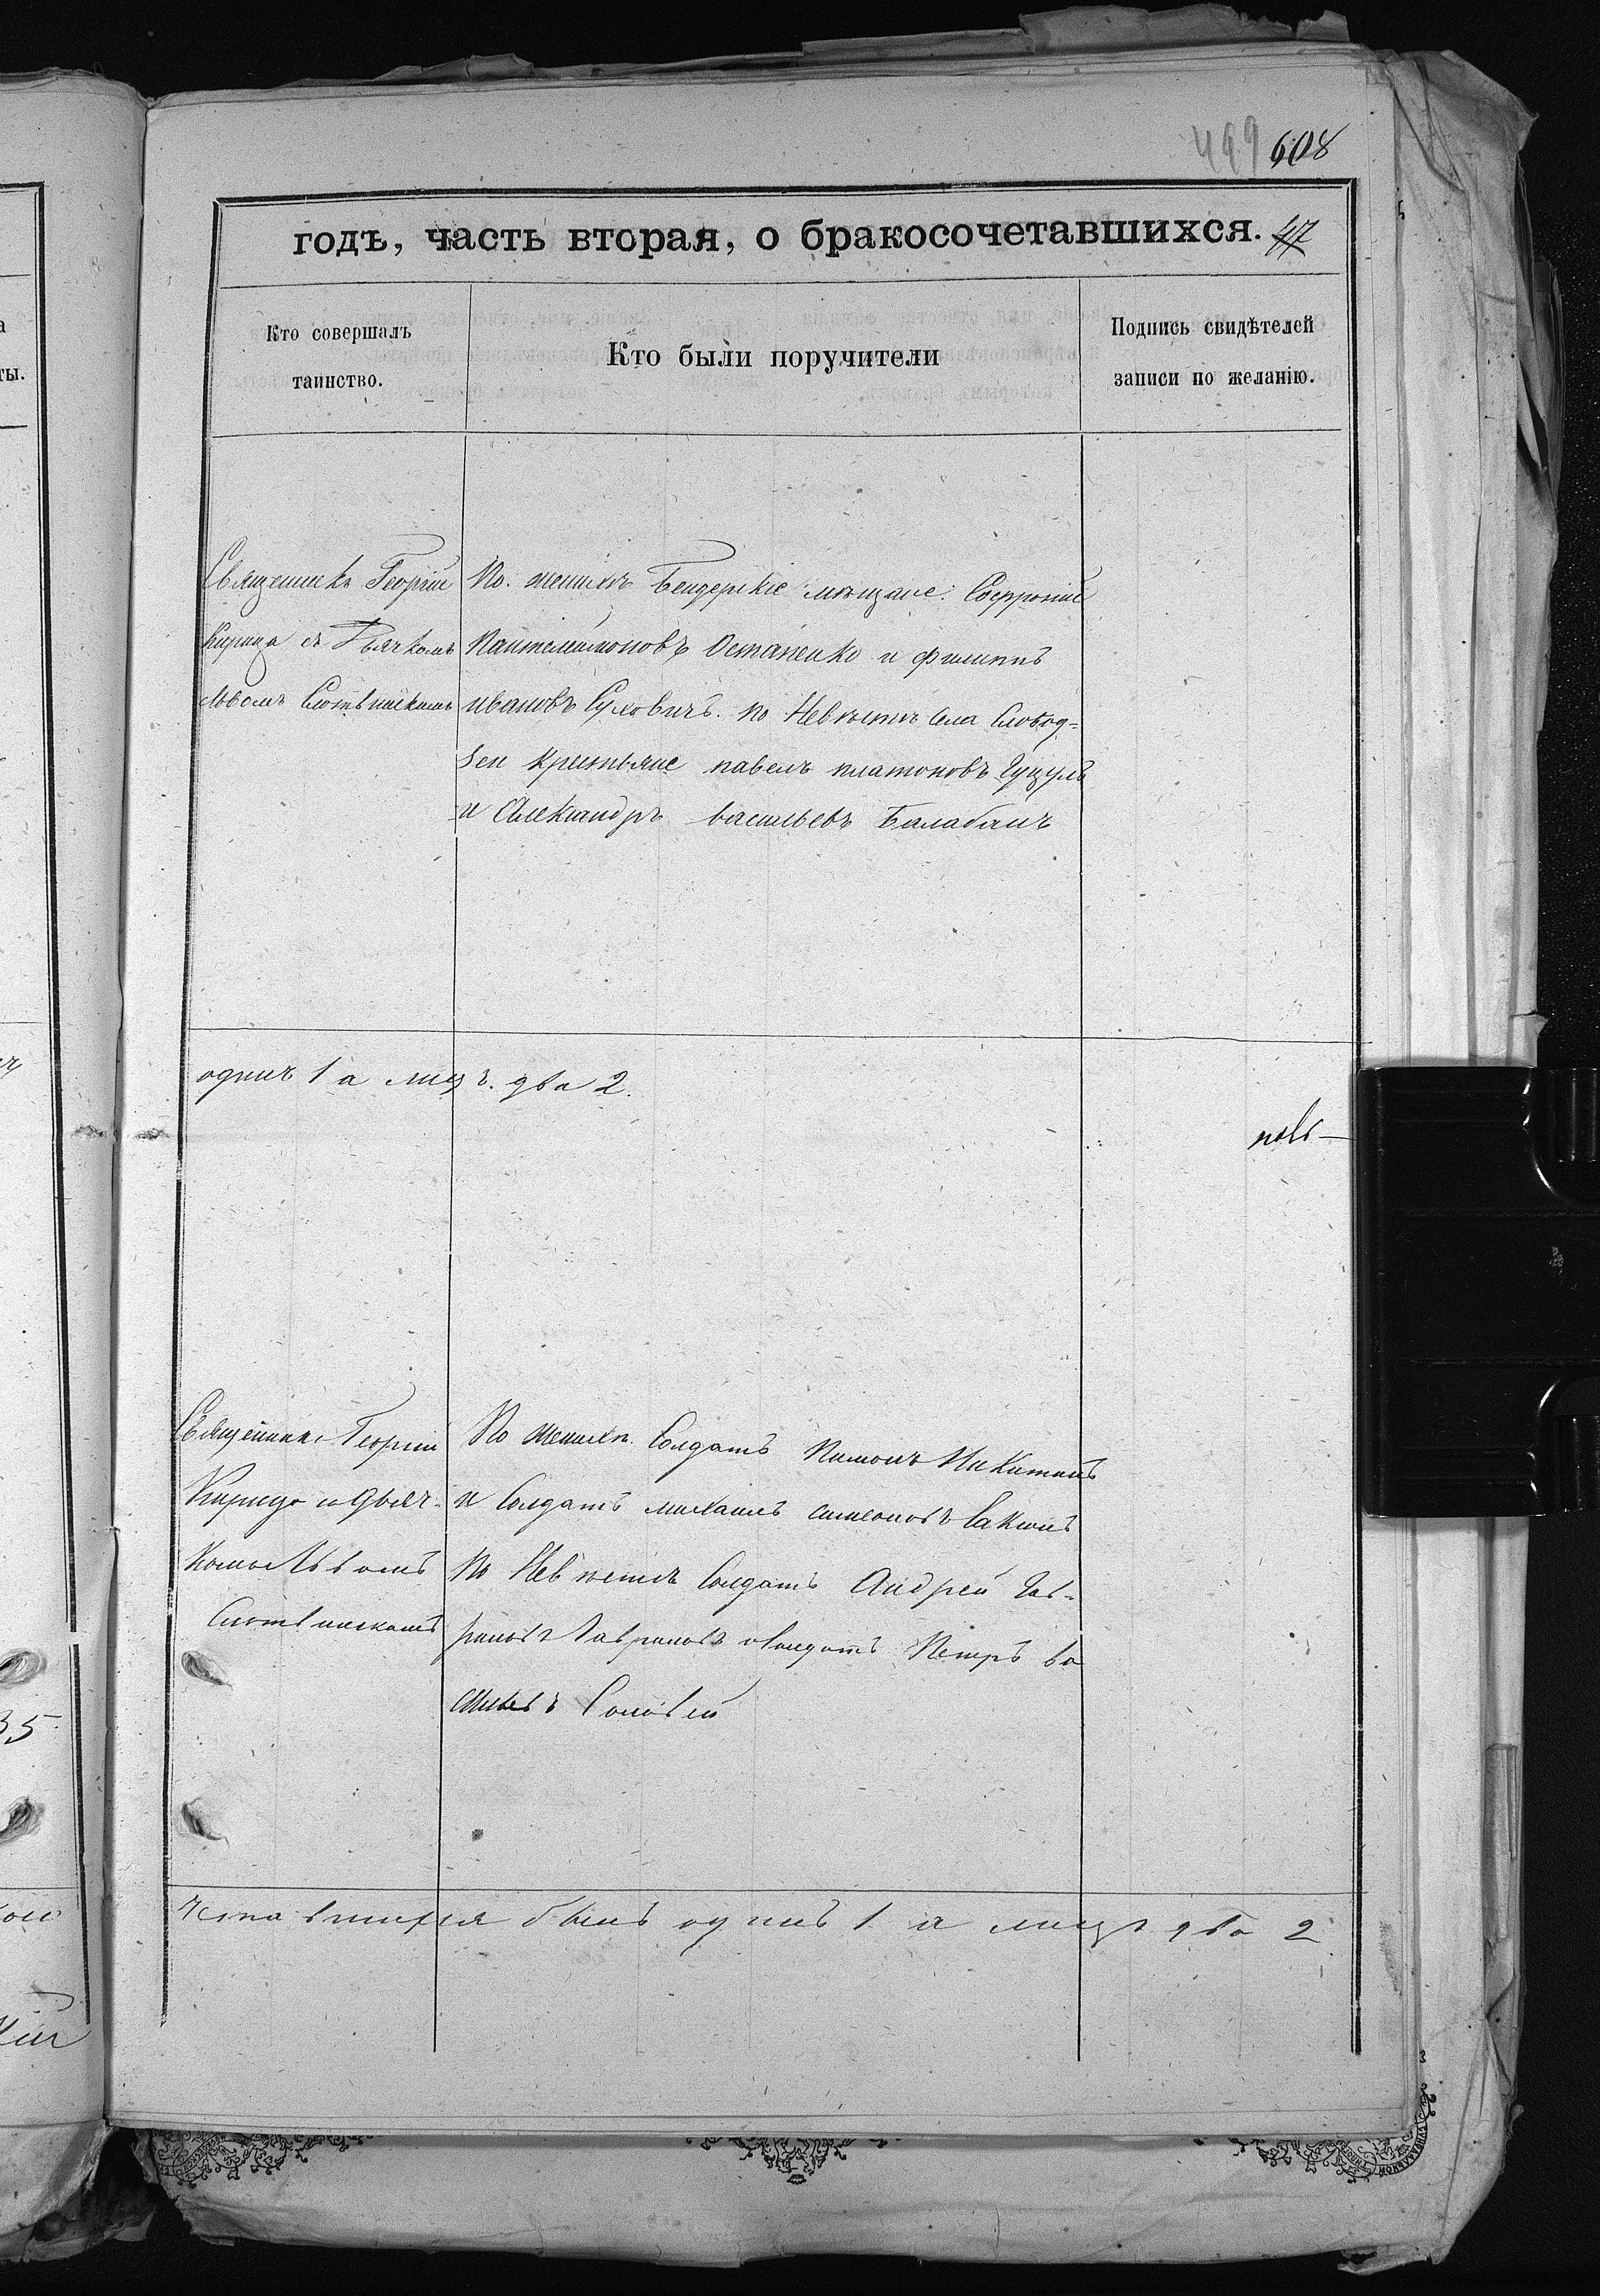 499 608
годъ, часть вторая, о бракосочетавшихся. 47
Кто совершалъ
таинство.
Кто были поручители
Подпись свидѣтелей
записи по желанію.
Священникъ Георгій
Кирица съ Дьячкомъ
Львомъ
По женихѣ Бендерскіе мѣщане: Софроній
Пантелеймоновъ Остапенко и филиппъ
ивановъ Суховичъ. по Невѣстѣ Села Слобод=
зеи крестьяне павелъ платоновъ Гуцулъ
и Александръ васильевъ Балабанъ
одинъ 1 а лицъ два 2.
Священникъ Георгій
Кирица со Дьяч-
комъ Львомъ
По женихѣ Солдатъ Пимонъ Никитинъ
и Солдатъ михаилъ симеоновъ
По Невѣстѣ Солдатъ Андрей Гав-
риловъ и Солдатъ Петръ ва
сильевъ Соловей
былъ одинъ 1 а лицъ два 2
35